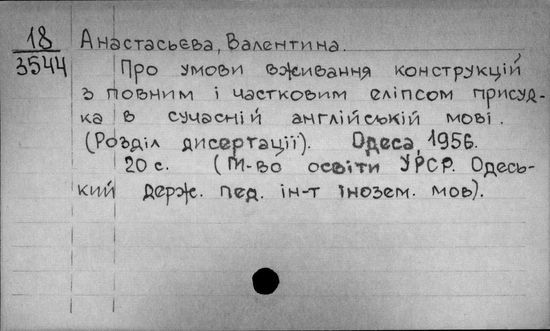 18
3544
Анастасьєва, Валентина.
Про умови вживання конструкцій
з повним і частковим еліпсом присуд-
ка в сучасній англійській мові.
(Розділ дисертації). Одеса, 1956.
20 с. (М-во освіти УРСР. Одесь-
кий держ. пед. ін-т інозем. мов).